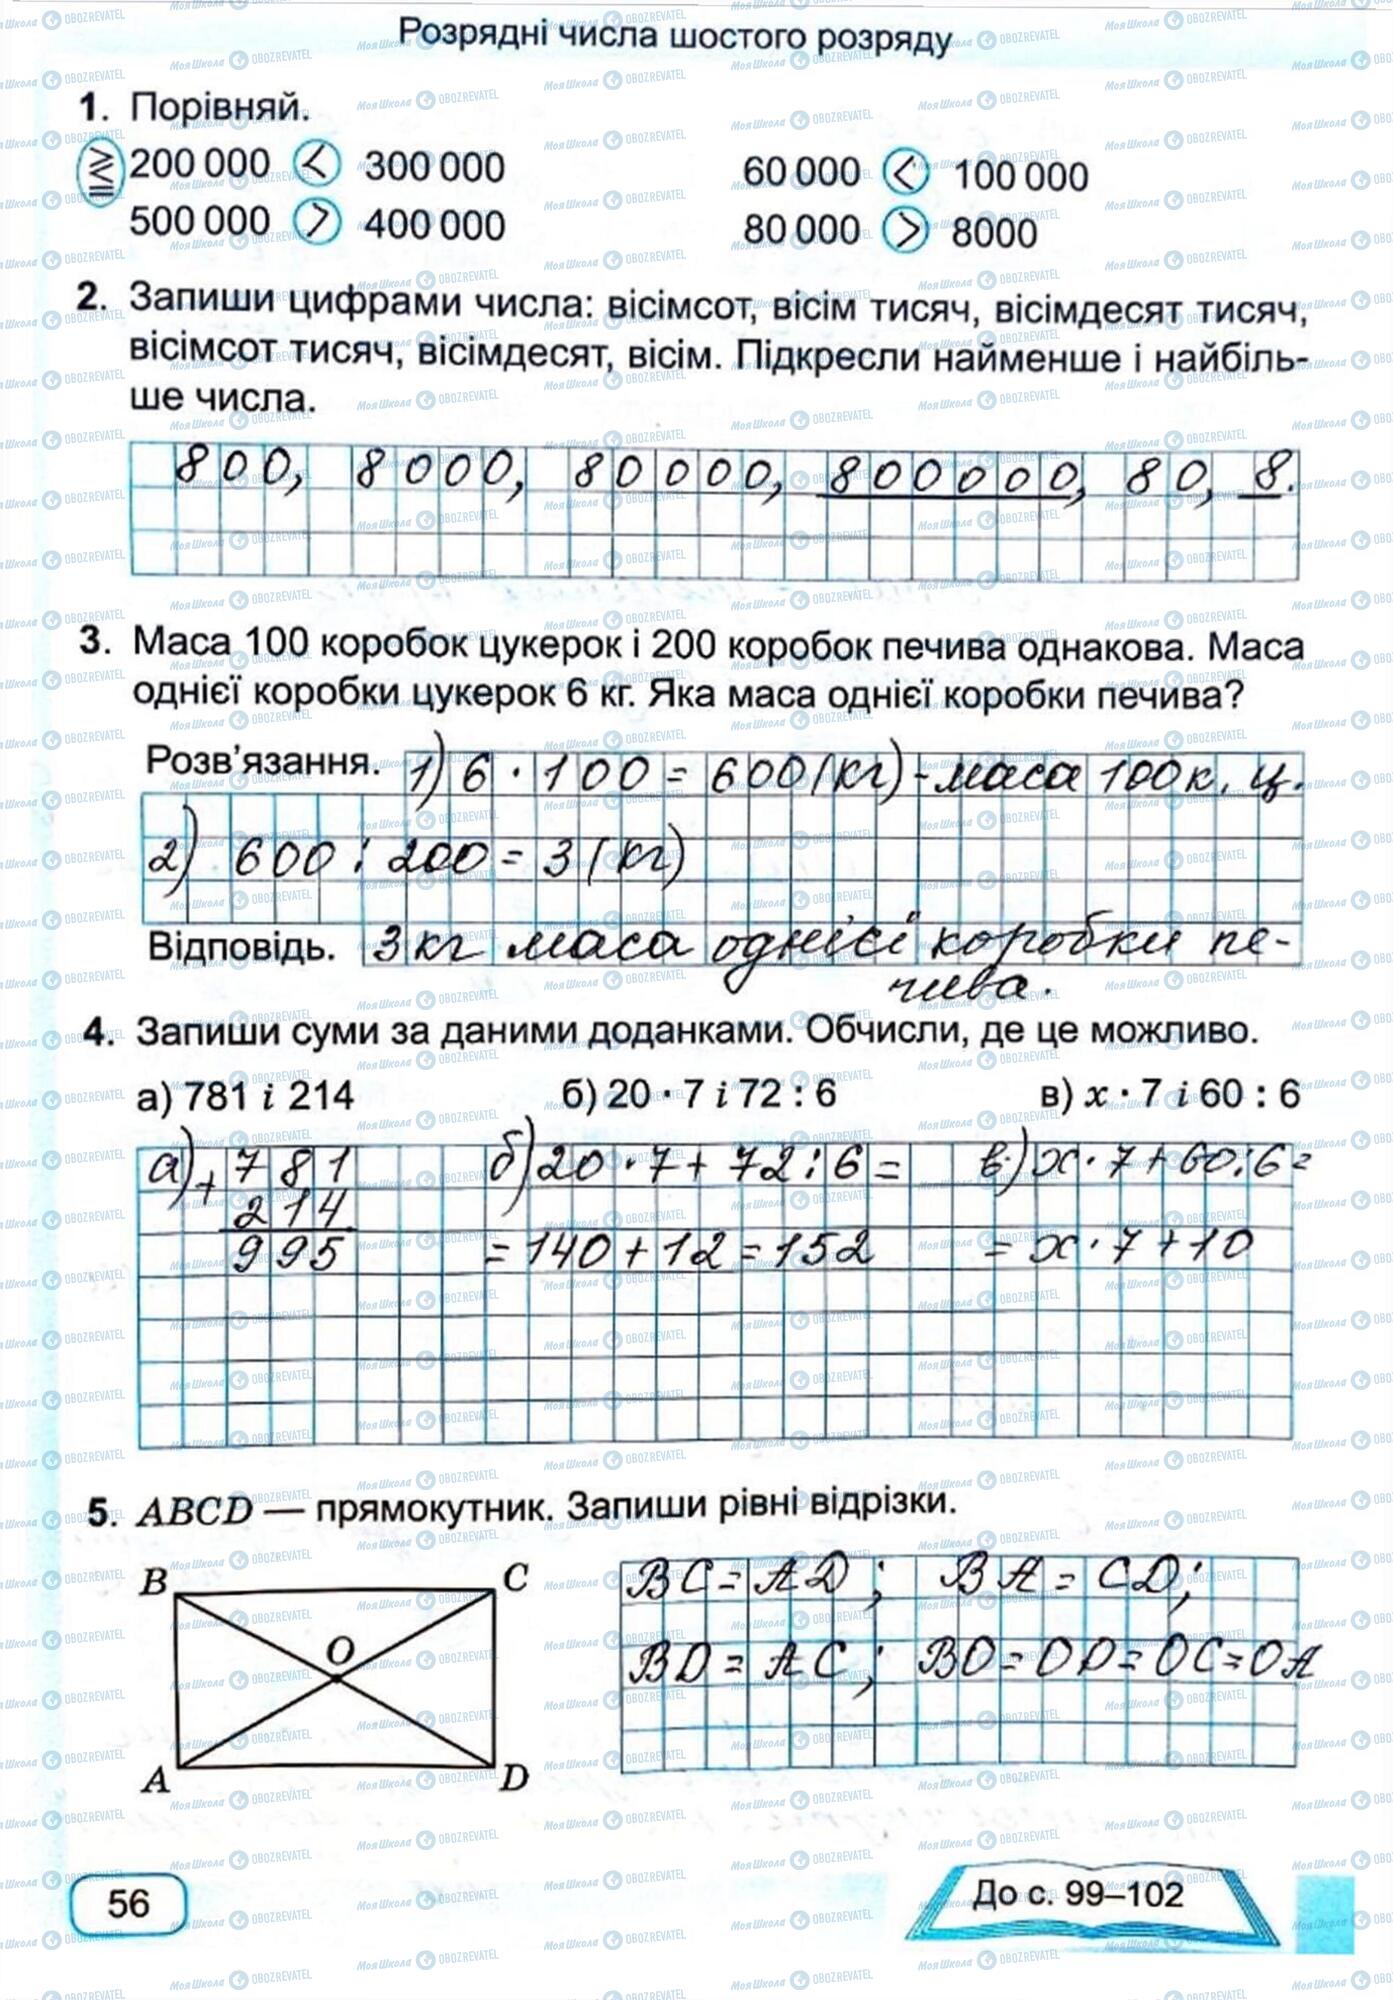 Розрядні числа шостого розряду
1. Порівняй.
200 000 < 300 000 60 000 < 100 000
500 000 > 400 000 80 000 > 8000
2. Запиши цифрами числа: вісімсот, вісім тисяч, вісімдесят тисяч,
вісімсот тисяч, вісімдесят, вісім. Підкресли найменше і найбіль-
ше числа.
800, 8000, 80000, 800000, 80, 8.
3. Маса 100 коробок цукерок і 200 коробок печива однакова. Маса
однієї коробки цукерок 6 кг. Яка маса однієї коробки печива?
Розв'язання. 1) 6 · 100 = 600 (кг) - маса 100 к. ц.
2) 600 : 200 = 3 (кг)
Відповідь. 3 кг маса однієї коробки пе-
чива.
4. Запиши суми за даними доданками. Обчисли, де це можливо.
а) 781 і 214 б) 20 · 7 і 72 : 6 в) x · 7 і 60 : 6
а) + 781 б) 20 · 7 + 72 : 6 = в) x · 7 + 60 : 6 =
214
995 = 140 + 12 = 152 = x · 7 + 10
5. ABCD — прямокутник. Запиши рівні відрізки.
B C BC = AD; BA = CD;
O BD = AC; BO = OD = OC = OA
A D
56 До с. 99–102
Моя Школа OBOZREVATEL